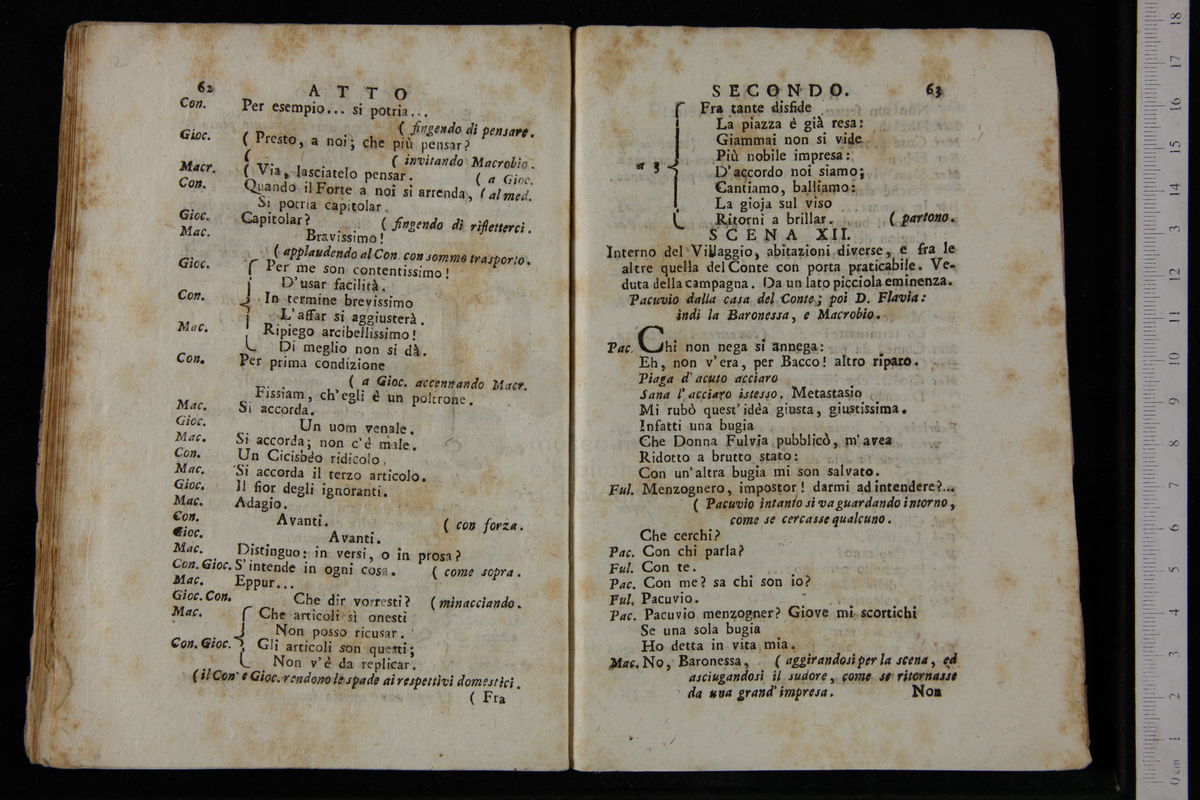 62 ATTO
Con. Per esempio... si potria...
( fingendo di pensare.
Gioc. ( Presto, a noi; che più pensar?
( ( invitando Macrobio.
Macr. ( Via, lasciatelo pensar. ( a Gioc.
Con. Quando il Forte a noi si arrenda, ( al med.
Si potria capitolar.
Gioc. Capitolar? ( fingendo di rifletterci.
Mac. Bravissimo!
( applaudendo al Con. con sommo trasporto.
Gioc. Per me son contentissimo!
D'usar facilità.
Con. In termine brevissimo
L'affar si aggiusterà.
Mac. Ripiego arcibellissimo!
Di meglio non si dà.
Con. Per prima condizione
( a Gioc. accennando Macr.
Fissiam, ch'egli è un poltrone.
Mac. Si accorda.
Gioc. Un uom venale.
Mac. Si accorda; non c'è male.
Con. Un Cicisbéo ridicolo.
Mac. Si accorda il terzo articolo.
Gioc. Il fior degli ignoranti.
Mac. Adagio.
Con. Avanti. ( con forza.
Gioc. Avanti.
Mac. Distinguo: in versi, o in prosa?
Con. Gioc. S'intende in ogni cosa. ( come sopra.
Mac. Eppur...
Gioc. Con. Che dir vorresti? ( minacciando.
Mac. Che articoli sì onesti
Non posso ricusar.
Con. Gioc. Gli articoli son questi;
Non v'è da replicar.
( il Con e Gioc. rendono le spade ai respettivi domestici.
( Fra
SECONDO. 63
Fra tante disfide
La piazza è già resa:
Giammai non si vide
Più nobile impresa:
a 3 D'accordo noi siamo;
Cantiamo, balliamo:
La gioja sul viso
Ritorni a brillar. ( partono.
SCENA XII.
Interno del Villaggio, abitazioni diverse, e fra le
altre quella del Conte con porta praticabile. Ve-
duta della campagna. Da un lato picciola eminenza.
Pacuvio dalla casa del Conte; poi D. Flavia:
indi la Baronessa, e Macrobio.
Pac. Chi non nega si annega:
Eh, non v'era, per Bacco! altro riparo.
Piaga d'acuto acciaro
Sana l'acciaro istesso. Metastasio
Mi rubò quest'idèa giusta, giustissima.
Infatti una bugia
Che Donna Fulvia pubblicò, m'avea
Ridotto a brutto stato:
Con un'altra bugia mi son salvato.
Ful. Menzognero, impostor! darmi ad intendere?...
( Pacuvio intanto si va guardando intorno,
come se cercasse qualcuno.
Che cerchi?
Pac. Con chi parla?
Ful. Con te.
Pac. Con me? sa chi son io?
Ful. Pacuvio.
Pac. Pacuvio menzogner? Giove mi scortichi
Se una sola bugia
Ho detta in vita mia.
Mac. No, Baronessa, ( aggirandosi per la scena, ed
asciugandosi il sudore, come se ritornasse
da una grand'impresa. Non
0 cm 1 2 3 4 5 6 7 8 9 10 11 12 13 14 15 16 17 18